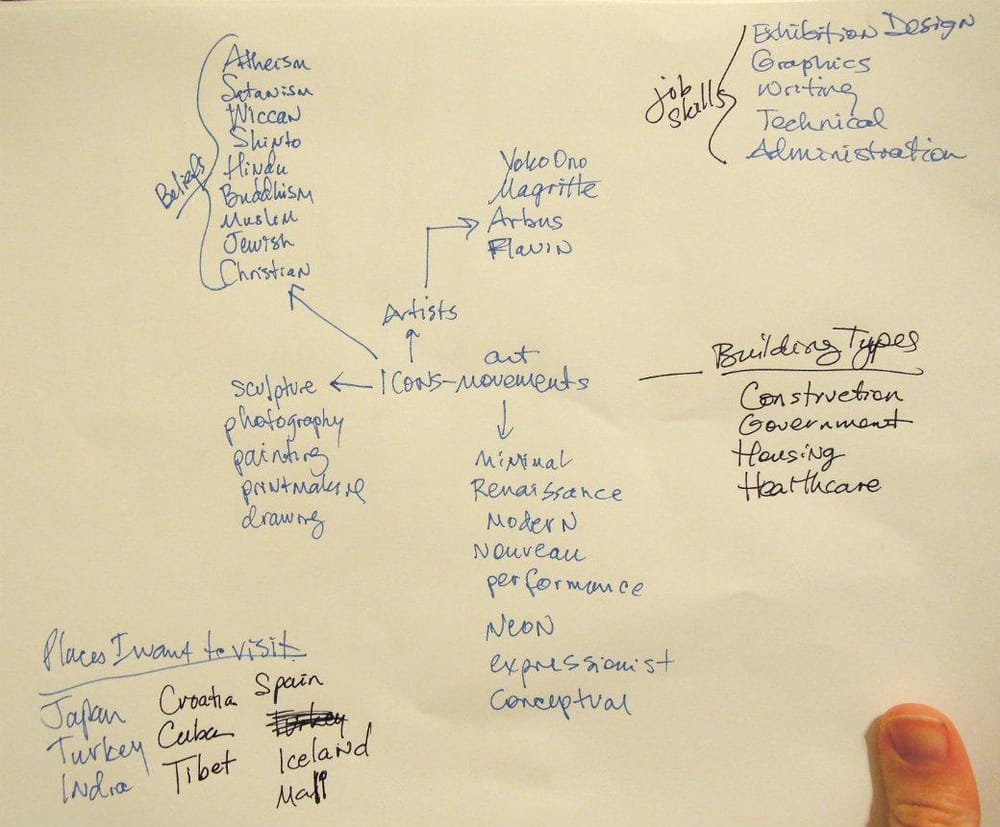 Atheism
Satanism
Wiccan
Shinto
Hindu
Buddhism
Muslim
Jewish
Christian
Beliefs
job
skills
Exhibition Design
Graphics
Writing
Technical
Administration
Yoko Ono
Magritte
Arbus
Flavin
Artists
art
Icons-movements
sculpture
photography
painting
printmaking
drawing
Minimal
Renaissance
Modern
Nouveau
performance
Neon
expressionist
Conceptual
Building Types
Construction
Government
Housing
Healthcare
Places I want to visit
Japan
Turkey
India
Croatia
Cuba
Tibet
Spain
Turkey
Iceland
Mali